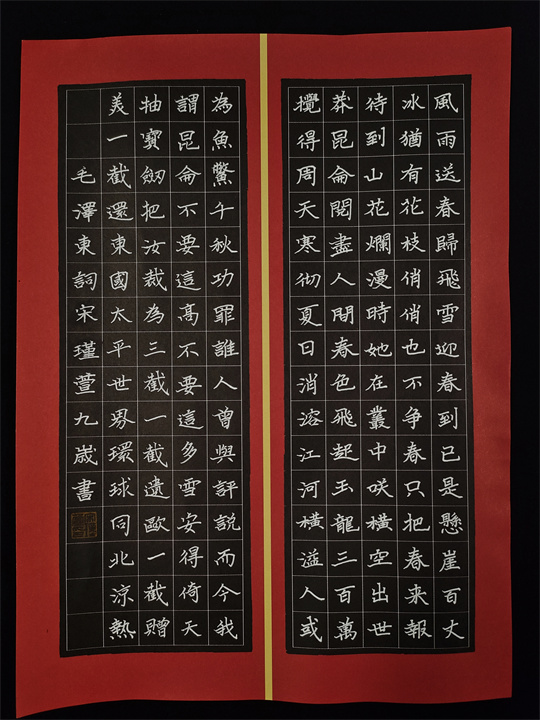 風雨送春歸飛雪迎春到已是懸崖百丈
冰猶有花枝俏俏也不争春只把春来報
待到山花爛漫時她在叢中咲横空出世
莽昆侖閱盡人間春色飛起玉龍三百萬
攪得周天寒彻夏日消溶江河横溢人或
為魚鱉千秋功罪誰人曾與評說而今我
謂昆侖不要這高不要這多雪安得倚天
抽寶劒把汝裁為三截一截遺歐一截贈
美一截還東國太平世界環球同此涼熱
毛澤東詞宋瑾萱九歲書